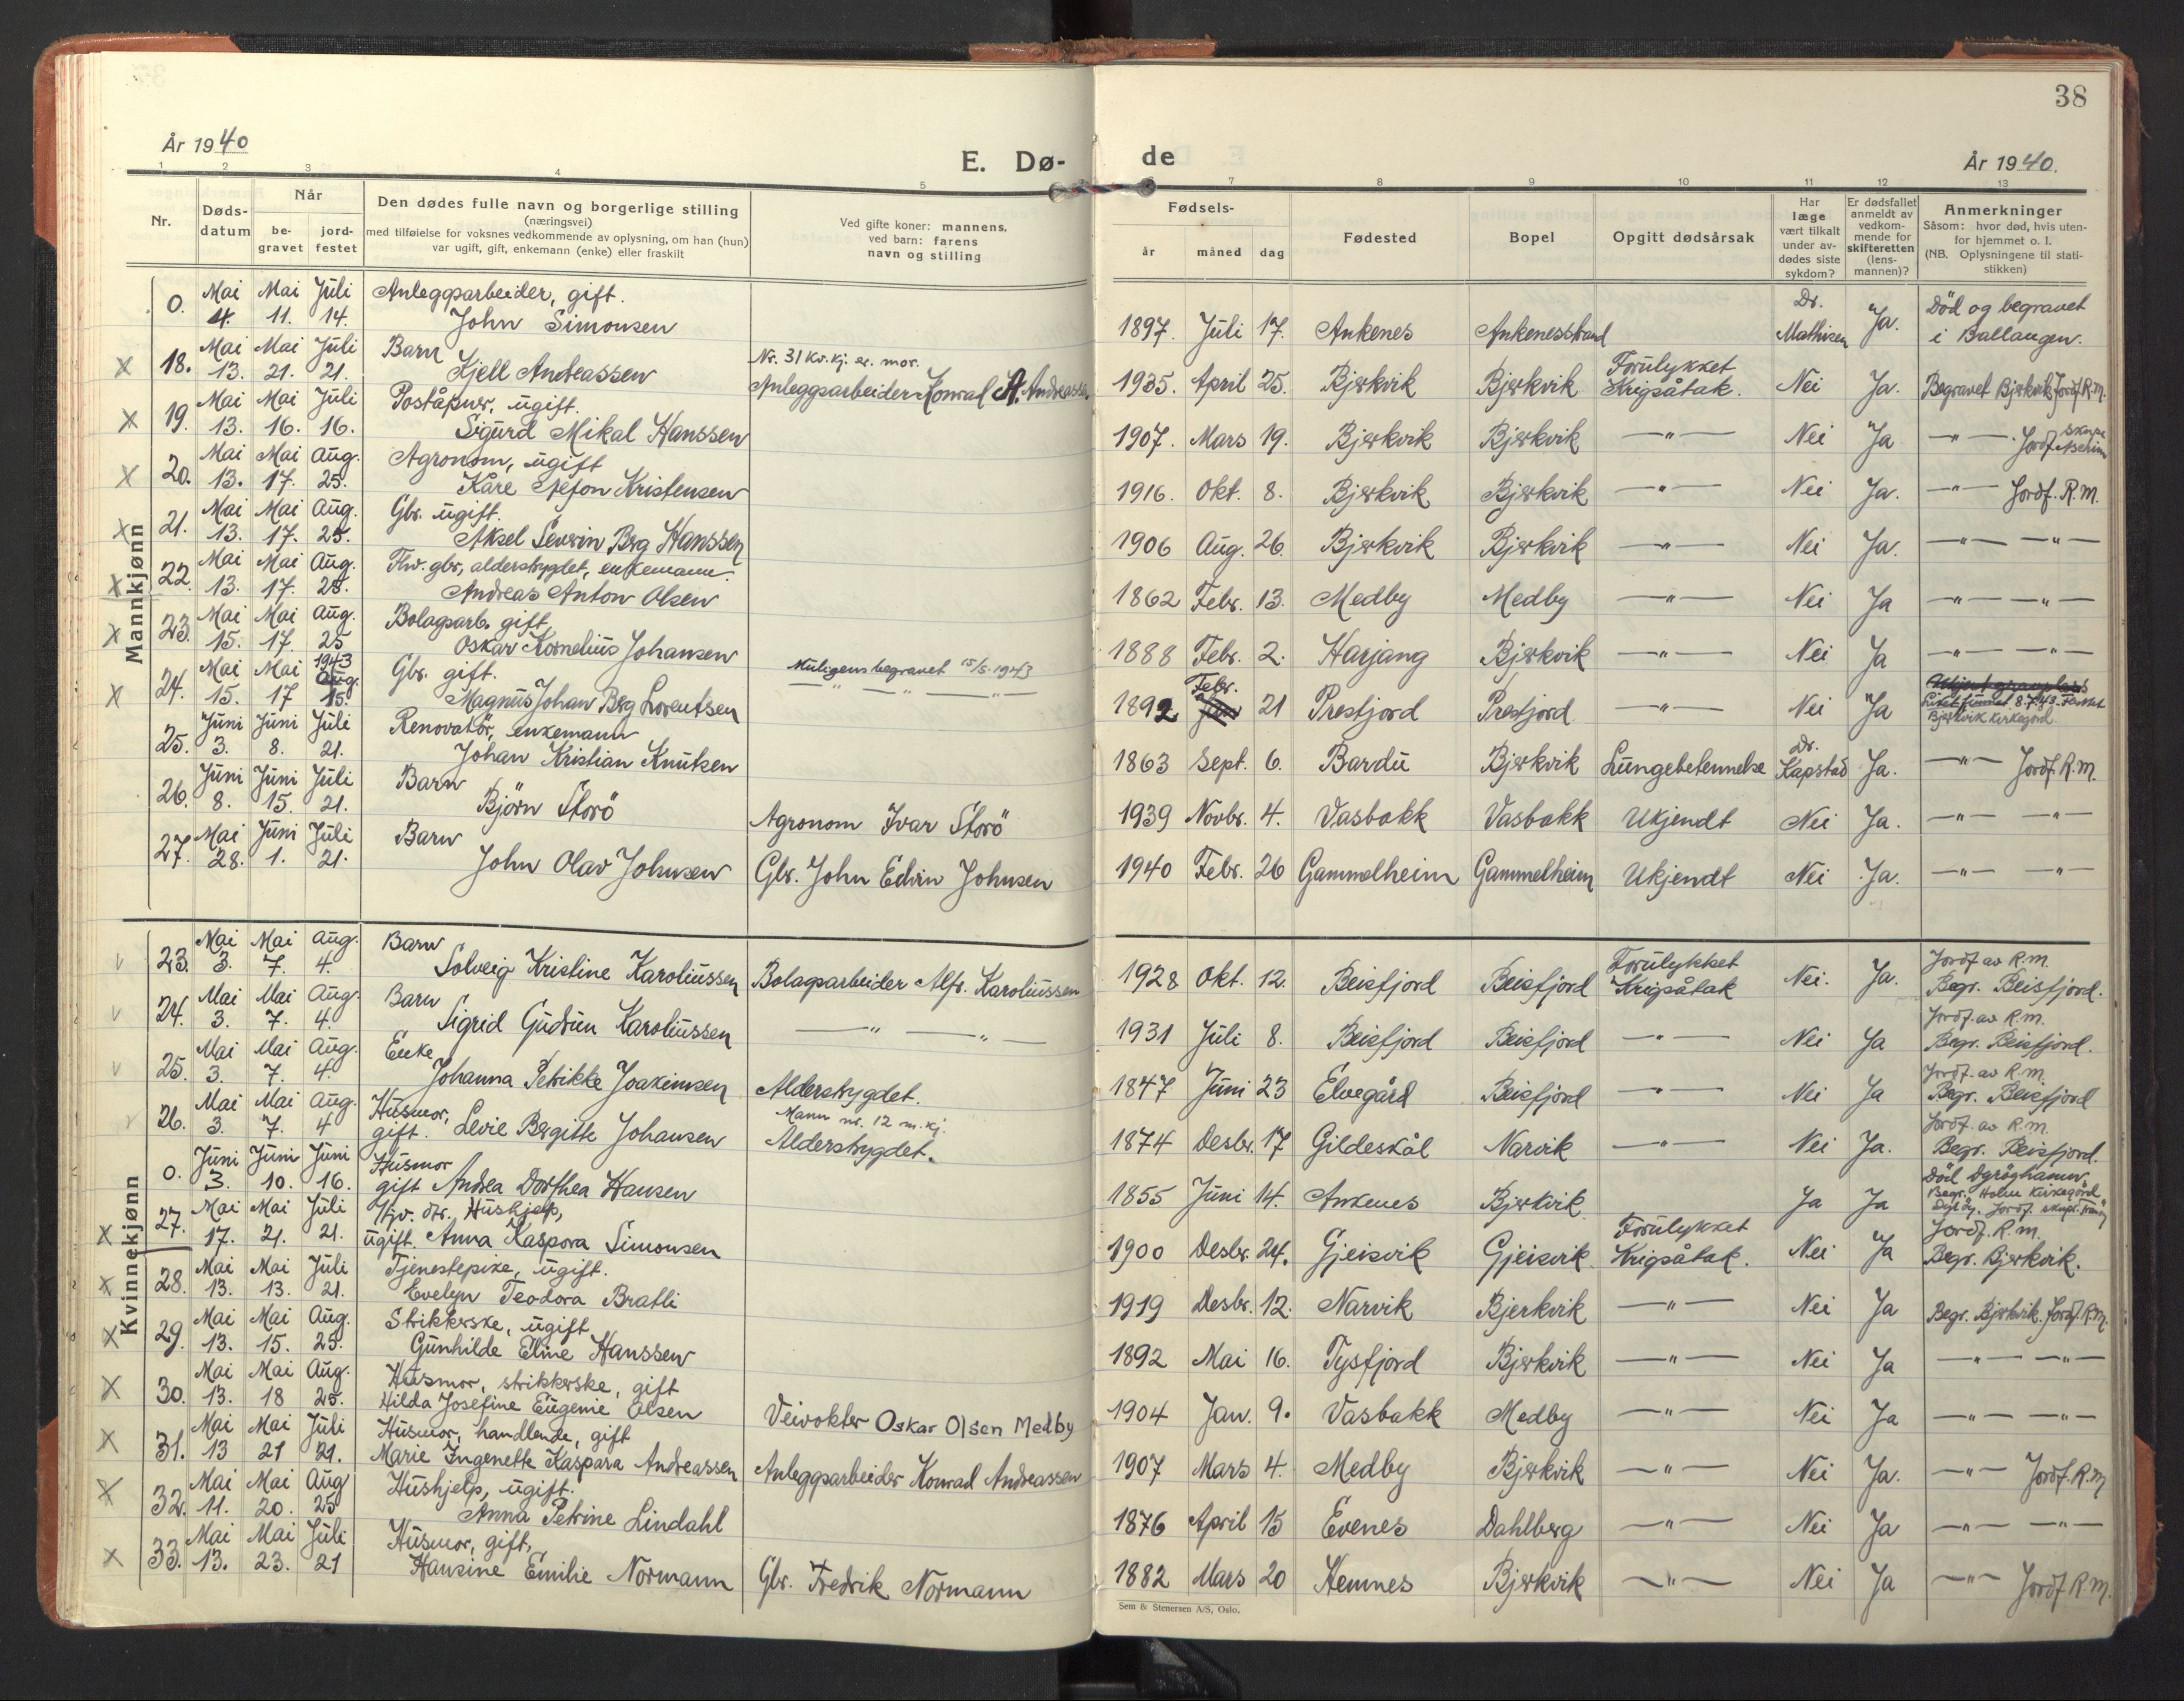 38
År 1940
E. Dø-
de
År 1940.
1 2 3 4 5 7 8 9 10 11 12 13
Nr.
Døds-
datum
Når
be-
gravet
jord-
festet
Den dødes fulle navn og borgerlige stilling
(næringsvei)
med tilføielse for voksnes vedkommende av oplysning, om han (hun)
var ugift, gift, enkemann (enke) eller fraskilt
Ved gifte koner: mannens,
ved barn: farens
navn og stilling
Fødsels-
år måned dag
Fødested
Bopel
Opgitt dødsårsak
Har
læge
vært tilkalt
under av-
dødes siste
sykdom?
Er dødsfallet
anmeldt av
vedkom-
mende for
skifteretten
(lens-
mannen)?
Anmerkninger
Såsom: hvor død, hvis uten-
for hjemmet o. l.
(NB. Oplysningene til stati-
stikken)
Mannkjønn
0. Mai Mai Juli Anleggsarbeider, gift. Dr. Død og begravet
4. 11. 14. John Simonsen 1897. Juli 17. Ankenes Ankenesstrand Mathisen Ja. i Ballangen.
x 18. Mai Mai Juli Barn Nr. 31 kv.kj. er mor. Forulykket
13. 21. 21. Kjell Andreassen Anleggsarbeider Konrad A. Andreassen 1935. April 25. Bjerkvik Bjerkvik Krigsåtak. Nei Ja. Begravet Bjerkvik Jordf. R.M.
x 19. Mai Mai Juli Poståpner, ugift.
13. 16. 16. Sigurd Mikal Hanssen 1907. Mars 19. Bjerkvik Bjerkvik —"— Nei Ja —"— Jordf.
x 20. Mai Mai Aug. Agronom, ugift
13. 17. 25. Kåre Stefon Kristensen 1916. Okt. 8. Bjerkvik Bjerkvik —"— Nei Ja. —"— Jordf. R.M.
x 21. Mai Mai Aug. Gbr. ugift.
13. 17. 25. Aksel Severin Berg Hanssen 1906 Aug. 26. Bjerkvik Bjerkvik —"— Nei Ja. —"— —"—
x 22. Mai Mai Aug. Fhv. gbr, alderstrygdet, enkemann.
13. 17. 25. Andreas Anton Olsen 1862 Febr. 13. Medby Medby —"— Nei Ja —"— —"—
x 23. Mai Mai Aug. Bolagsarb. gift
15. 17. 25 Oskar Kornelius Johansen 1888 Febr. 2. Harjang Bjerkvik —"— Nei Ja —"— —"—
x 24. Mai Mai 1943 Aug. Gbr. gift. Muligens begravet 15/8. 1943 Febr.
15. 17 15. Magnus Johan Berg Lorentsen —"— —"— 1892 21 Presfjord Presfjord —"— Nei Ja Liket funnet 8.7.43. Bjerkvik kirkegård
25. Juni Juni Juli Renovatör, enkemann Dr.
3. 8. 21. Johan Kristian Knutsen 1863 Sept. 6. Bardu Bjerkvik Lungebetennelse Kapstad Ja. —"— Jordf. R.M.
26. Juni Juni Juli Barn
8. 15. 21. Björn Storö Agronom Ivar Storö 1939 Novbr. 4. Vasbakk Vasbakk Ukjendt Nei Ja. —"— —"—
27. Mai Juni Juli Barn
28. 1. 21. John Olav Johnsen Gbr. John Edvin Johnsen 1940 Febr. 26 Gammelheim Gammelheim Ukjendt Nei Ja. —"— —"—
Kvinnekjønn
v 23. Mai Mai Aug. Barn Forulykket Jordf av R.M.
3. 7. 4. Solveig Kristine Karoliussen Bolagsarbeider Alfr. Karoliussen 1928 Okt. 12. Beisfjord Beisfjord Krigsåtak Nei. Ja. Begr. Beisfjord.
v 24. Mai Mai Aug. Barn Jordf. av R.M.
3. 7. 4. Sigrid Gudrun Karoliussen —"— —"— 1931 Juli 8. Beisfjord Beisfjord —"— Nei Ja Begr. Beisfjord.
v 25. Mai Mai Aug. Enke Jordf. av R.M.
3. 7. 4. Johanna Petrikke Joakimsen Alderstrygdet. 1847 Juni 23 Elvegård Beisfjord —"— Nei Ja Begr. Beisfjord
v 26. Mai Mai Aug. Husmor, Mann nr. 12 m.kj. Jordf. av R.M.
3. 7. 4 gift. Levie Bergitte Johansen Alderstrygdet. 1874 Desbr. 17 Gildeskål Narvik —"— Nei Ja. Begr. Beisfjord.
0. Juni Juni Juni Husmor Död Dyröyhamn.
3. 10. 16. gift Andrea Dorthea Hansen 1855 Juni 14. Ankenes Bjerkvik Ja Ja Begr. Holm kirkegård
x 27. Mai Mai Juli Hushjelp, Forulykket Jordf. R.M.
17. 21. 21. ugift. Anna Kaspara Simonsen 1900 Desbr. 24. Gjeisvik Gjeisvik Krigsåtak. Nei Ja Begr. Bjerkvik.
x 28. Mai Mai Juli Tjenestepike, ugift.
13. 13. 21. Evelyn Teodora Bratli 1919 Desbr. 12. Narvik Bjerkvik —"— Nei Ja Begr. Bjerkvik. Jordf. R.M.
x 29. Mai Mai Aug. Strikkerske, ugift
13. 15. 25. Gunhilde Eline Hanssen 1892 Mai 16. Tysfjord Bjerkvik —"— Nei Ja —"— —"—
x 30. Mai Mai Aug. Husmor, strikkerske, gift
13. 18 25. Hilda Josefine Eugenie Olsen Veivokter Oskar Olsen Medby 1904 Jan. 9. Vasbakk Medby —"— Nei Ja —"— —"—
x 31. Mai Mai Juli Husmor, handlende, gift
13 21 21. Marie Ingenette Kaspara Andreassen Anleggsarbeider Konrad Andreassen 1907 Mars 4. Medby Bjerkvik —"— Nei Ja. —"— Jordf. R.M
x 32. Mai Mai Aug Hushjelp, ugift.
11. 20. 25 Anna Petrine Lindahl 1876 April 15 Evenes Dahlberg —"— Nei Ja —"— —"—
x 33. Mai Mai Juli Husmor, gift,
13. 23. 21 Hansine Emilie Normann Gbr. Fredrik Normann 1882 Mars 20 Hemnes Bjerkvik —"— Nei Ja —"— Jordf R.M.
Sem & Stenersen A/S, Oslo.